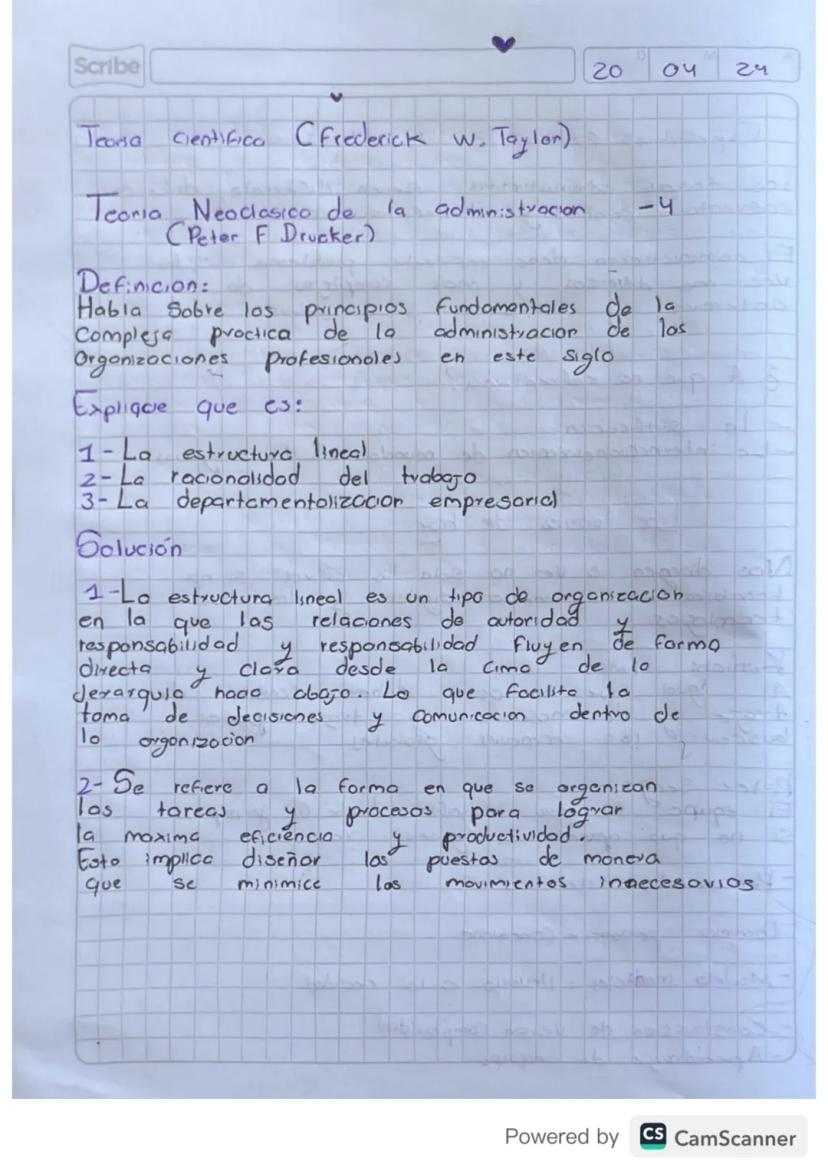 Scribe
20 04 24
Teoria Cientifica (Frederick W. Taylor)
Teoria Neoclasico de la administracion -4
(Peter F Drucker)
Definicion:
Habla Sobre los principios fundamentales de la
Compleja practica de la administracion de las
Organizaciones profesionales en este siglo
Explique que es:
1- La estructura lineal
2- La racionalidad del trabajo
3- La departamentalizacion empresarial
Solución
1- La estructura lineal es un tipo de organizacion
en la que las relaciones de autoridad y
responsabilidad y responsabilidad fluyen de forma
directa y clara desde la cima de la
jerarquia hacia abajo. Lo que facilita la
toma de decisiones y comunicacion dentro de
la organizacion
2- Se refiere a la forma en que se organizan
las tareas y procesos para lograr
la maxima eficiencia y productividad.
Esto implica diseñar los puestos de manera
que se minimice los movimientos innecesarios
Powered by CS CamScanner